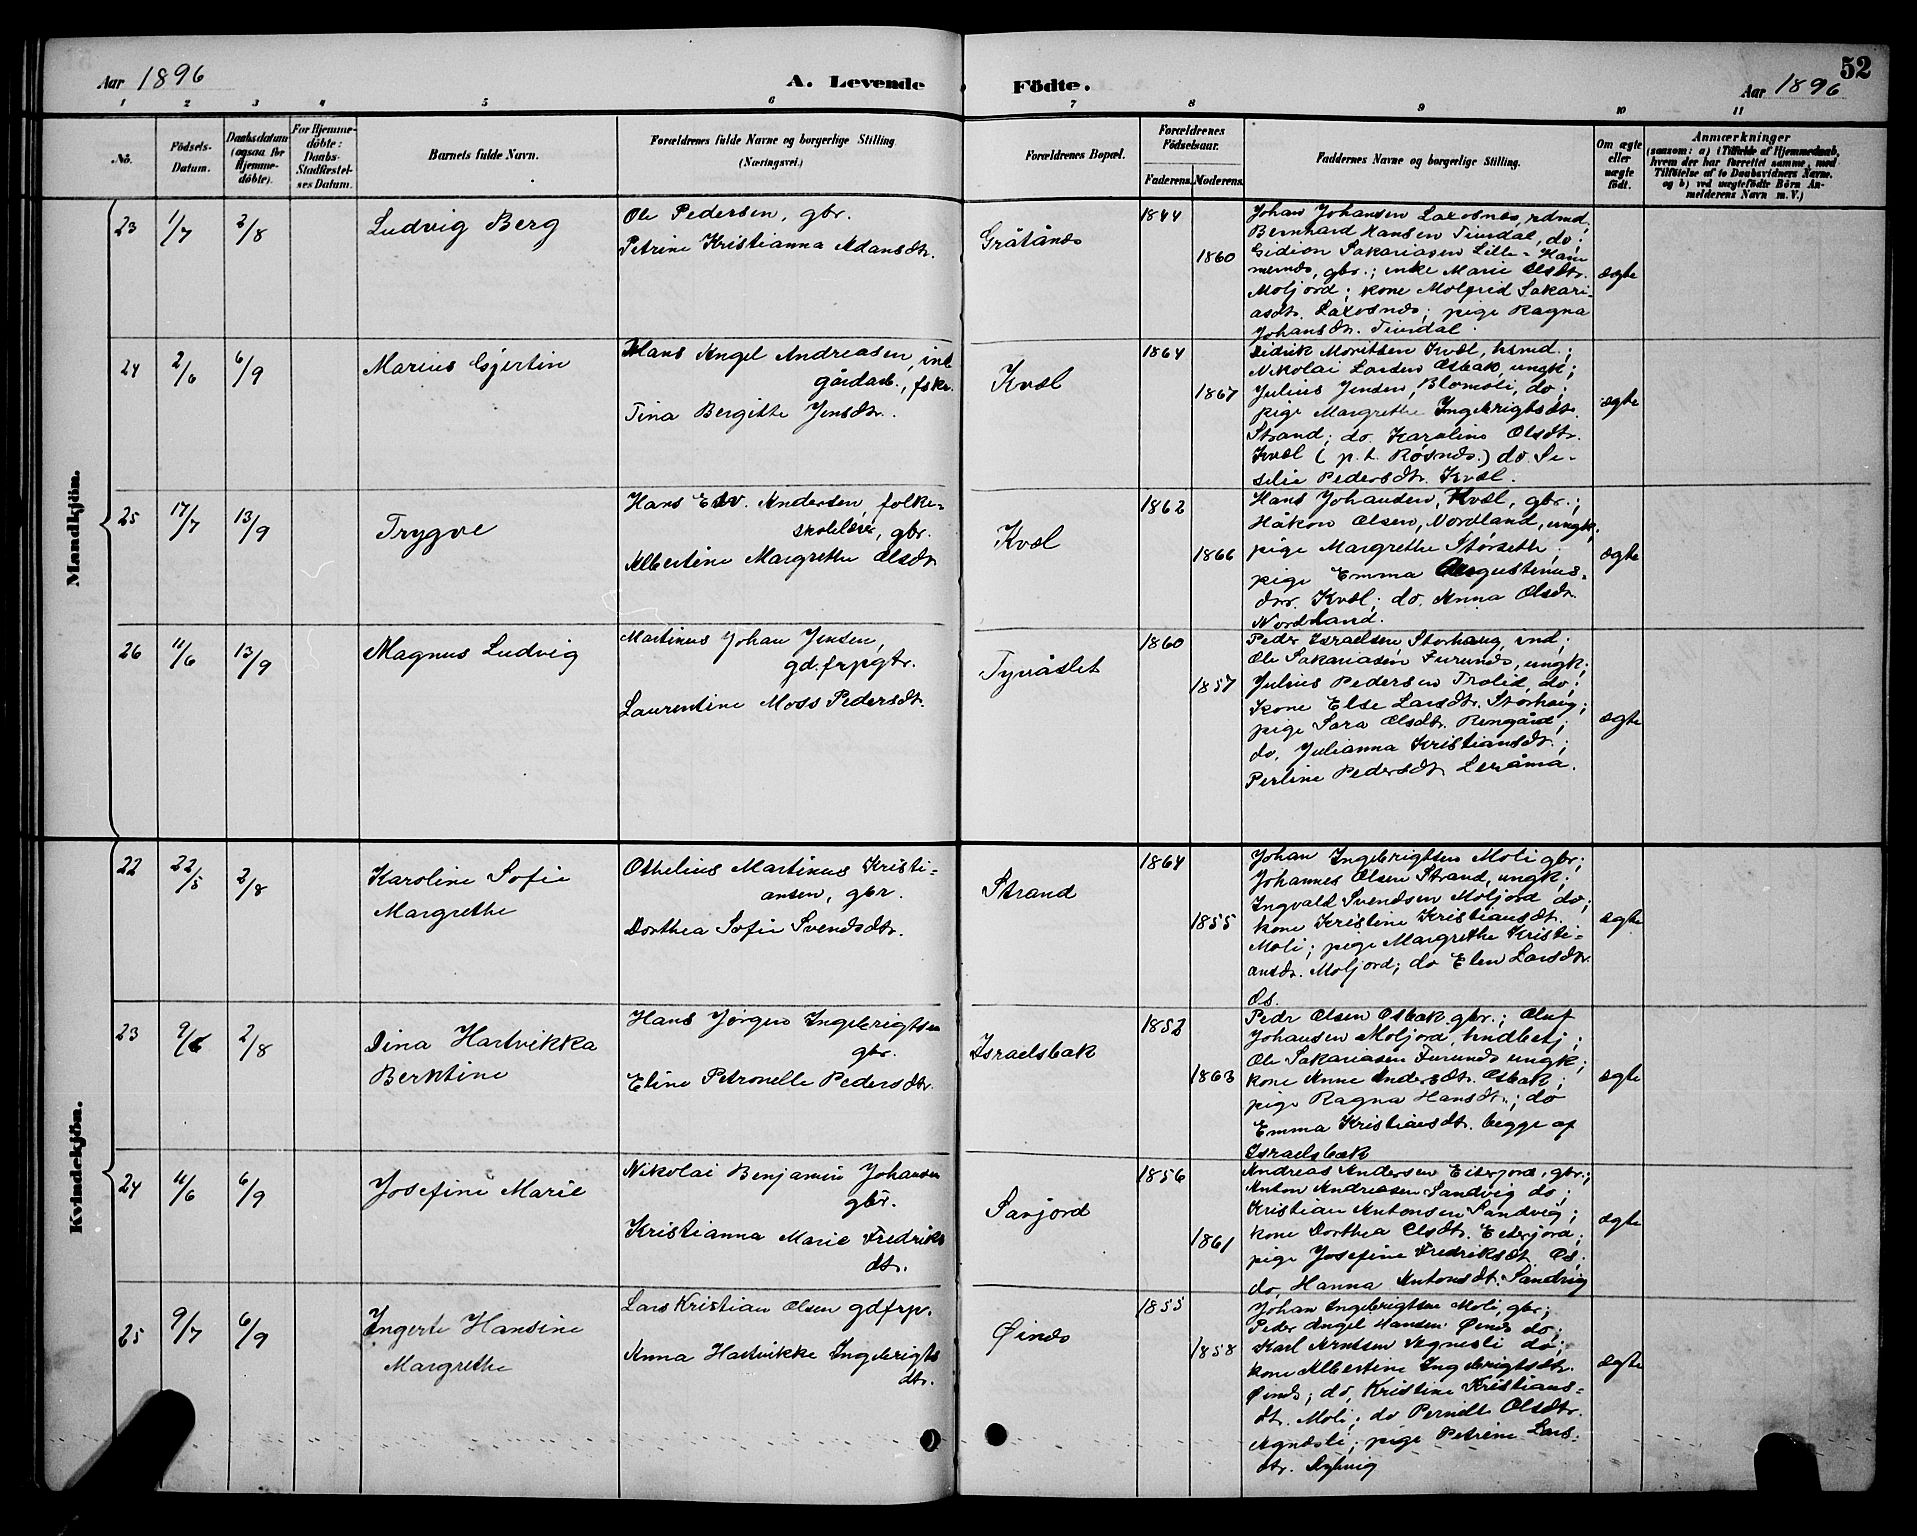 Aar 1896
A. Levende
Födte.
52
Aar 1896
1 2 3 4 5 6 7 8 9 10 11
No.
Födsels-
Datum.
Daabsdatum
(ogsaa for
Hjemme-
döbte).
For Hjemme-
döbte:
Daabs-
Stadfæstel-
ses Datum.
Barnets fulde Navn.
Forældrenes fulde Navne og borgerlige Stilling
(Næringsvei.)
Forældrenes Bopæl.
Forældrenes
Födselsaar.
Faderens. Moderens.
Faddernes Navne og borgerlige Stilling.
Om ægte
eller
uægte
födt.
Anmærkninger
(saasom: a) i Tilfælde af Hjemmedaab,
hvem der har forrettet samme, med
Tilföielse af to Daabsvidners Navne.
og b) ved uægtefödte Börn An-
melderens Navn m.V.)
Mandkjön.
23 1/7 2/8
Ludvig Berg
Ole Pedersen, gbr.
Petrine Kristianna Adamsdtr.
Gråtånes
1844
1860
Johan Johansen Laxosnes, rdmd,
Bernhard Hansen Tinrdal, do;
Gidion Sakariasen Lille-Ham
mernes, gbr.; enke Marie Olsdtr.
Moljord; kone Molfrid Sakari-
asdtr. Laxosnes; pige Ragna
Johansdtr.
ægte
24 2/6 6/9
Marius Gjertin
Hans Angel Andreasen, ind
gårdarb., fsker.
Tina Bergitte Jensdtr.
Kvæl
1864
1867
Didrik Moritsen Kvæl, hsmd.;
Nikolai Larsen Osbak, ungk;
Julius Jensen, Blomoli, do;
pige Margrethe Ingebrigtsdtr.
Strand; do. Karoline Olsdtr.
Kvæl (p.t. Røsnes.) do. Se-
silie Pedersdtr. Kvæl.
ægte
25 17/7 13/9
Trygve
Hans Edv. Andersen, folke-
skolelærer, gbr.
Albertine Margrethe Olsdtr
Kvæl
1862
1866
Hans Johansen, Kvæl, gbr.;
Håkon Olsen, Nordland, ungk,
pige Margrethe Störseth;
pige Emma Augustinus-
dtr. Kvæl; do. Anna Olsdtr.
Nordland.
ægte
26 11/6 13/9
Magnus Ludvig
Martinus Johan Jensen,
gd.frpgtr.
Laurentine Moss Pedersdtr.
Tyvåslet
1860
1857
Peder Israelsen, Storhaug, ind;
Ole Sakariasen Furunes, ungk;
Julius Pedersen Trolid, do;
Kone Else Larsdtr. Storhaug;
pige Sara Olsdtr. Rengård;
do. Julianna Kristiansdtr.;
Perline Pedersdtr Leråma.
ægte
Kvindekjön.
22 22/5 2/8
Karoline Sofie
Margrethe
Othelius Martinus Kristi-
ansen, gbr.
Dorthea Sofie Svendsdtr.
Strand
1864
1855
Johan Ingebrigtsen Moli gbr;
Johannes Olsen Strand, ungk;
Ingvald Svendsen Moljord do;
kone Kristine Kristiansdtr.
Moli; pige Margrethe Kristi-
ansdtr. Moljord; do Elen Larsdtr.
Øs.
ægte
23 9/6 2/8
Dina Hartvikka
Berntine
Hans Jørgen Ingebrigtsen
gbr.
Eline Petronelle Pedersdtr.
Israelsbak
1852
1863
Pedr Olsen Osbak gbr.; Oluf
Johansen Moljord,
Ole Sakariasen Furunes ungk;
kone Anne Andersdtr. Osbak;
pige Ragna Hansdtr.; do
Emma Kristiansdtr. begge af
Israelsbæk
ægte
24 11/6 6/9
Josefine Marie
Nikolai Benjamin Johansen
gbr.
Kristianna Marie Fredriks
dtr.
Sanjord
1856
1861
Andreas Andersen Eiterjord, gbr;
Anton Andreasen Sandvig do;
Kristian Antonsen Sandvig;
kone Dorthea Olsdtr. Eiterjord;
pige Josefine Fredriksdtr Øs.
do, Hanna Antonsdtr. Sandvig
ægte
25 9/7 6/9
Ingerte Hansine
Margrethe
Lars Kristian Olsen gdfrp.
Anna Hartvikke Ingebrigts
dtr.
Øines
1855
1858
Johan Ingebrigtsen Moli, gbr;
Peder Angel Hansen Øines do;
Karl Arntsen do;
kone Albertine Ingebrigtsdtr.
Øines; do, Kristine Kristians-
dtr. Moli; do Pernelle Olsdtr.
Agnesli; pige Petrine Lars-
dtr.
ægte